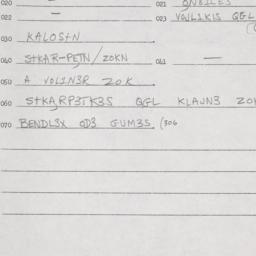 020 — 021 ONBILES
022 — 023 VOULIKIS QGL
030 KALOSTN
040 STKAR-PETN/ZOKN 041 —
050 A VOLINER ZOK
060 STKARPETKES QGL KLAJNE ZO
070 BENDLEX ODE GUMES. (306